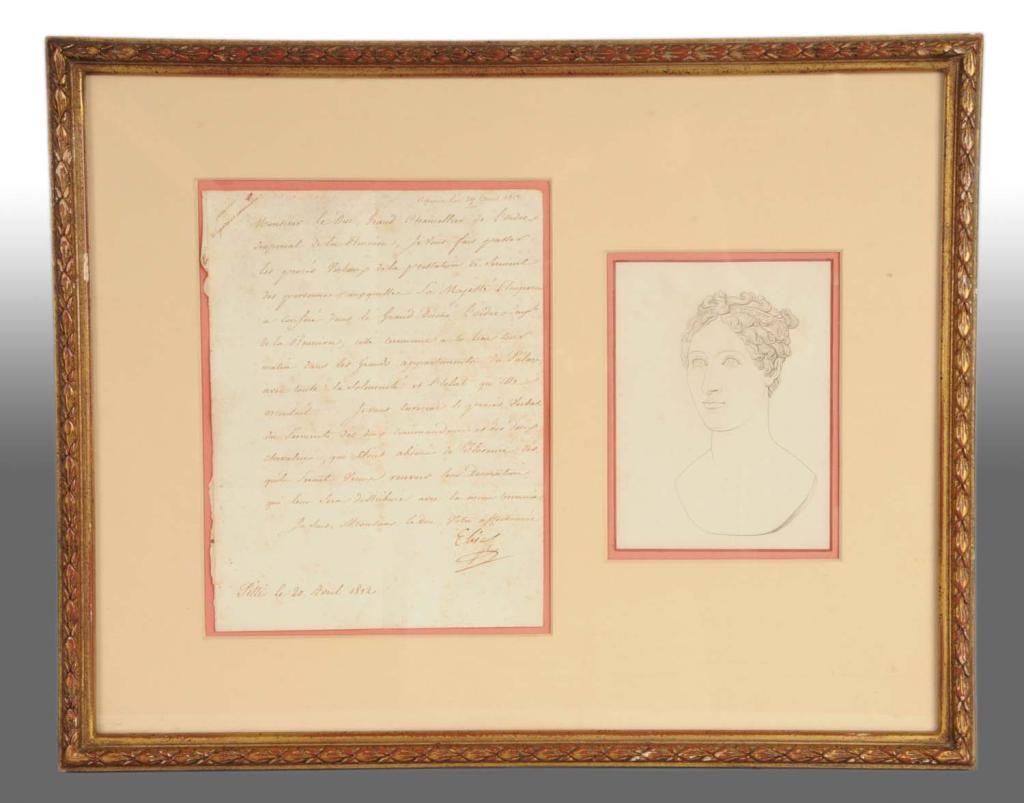 29 1812
Monsieur le Duc, Grand Chancellier de l'ordre
Imperial de la Réunion, Je Vous fais passer
les procès Verbaux de la prestation de Serment
des personnes auxquelles Sa Majesté l'Empereur
a conféré dans le Grand l'ordre imp.
de la Réunion, cette ceremonie a eu lieu
matin dans les Grands appartements du Palais
avec toute la Solemnité et l'éclat qu'elle
meritait. Je vous enverrai le procès Verbal
du Serment, des deux commandeurs et des deux
chevaliers, qui étant absens de Florence
Decoration
qui leur Sera distribuée avec la meme
Je Suis, Monsieur le Duc, Votre affectionnée
Elisa
Pitti le 20 Avril 1812